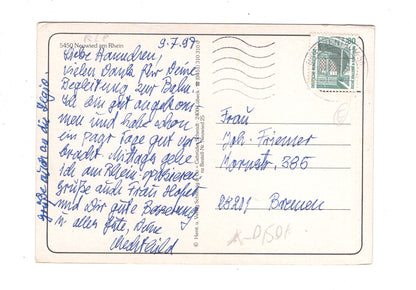 5450 Neuwied am Rhein
9.7.97
Liebe Hannchen,
vielen Dank für Deine
Begleitung zur Bahn.
Ich bin gut angekom
men und habe schon
ein paar Tage gut ver
bracht. Mittags gehe
ich am Rhein spazieren
Grüße auch Frau Hofer
und Dir gute Besserung
u. alles Gute, Deine
Mechthild
Grüße auch an die
80
Frau
Joh. Friemer
385
28201 Bremen